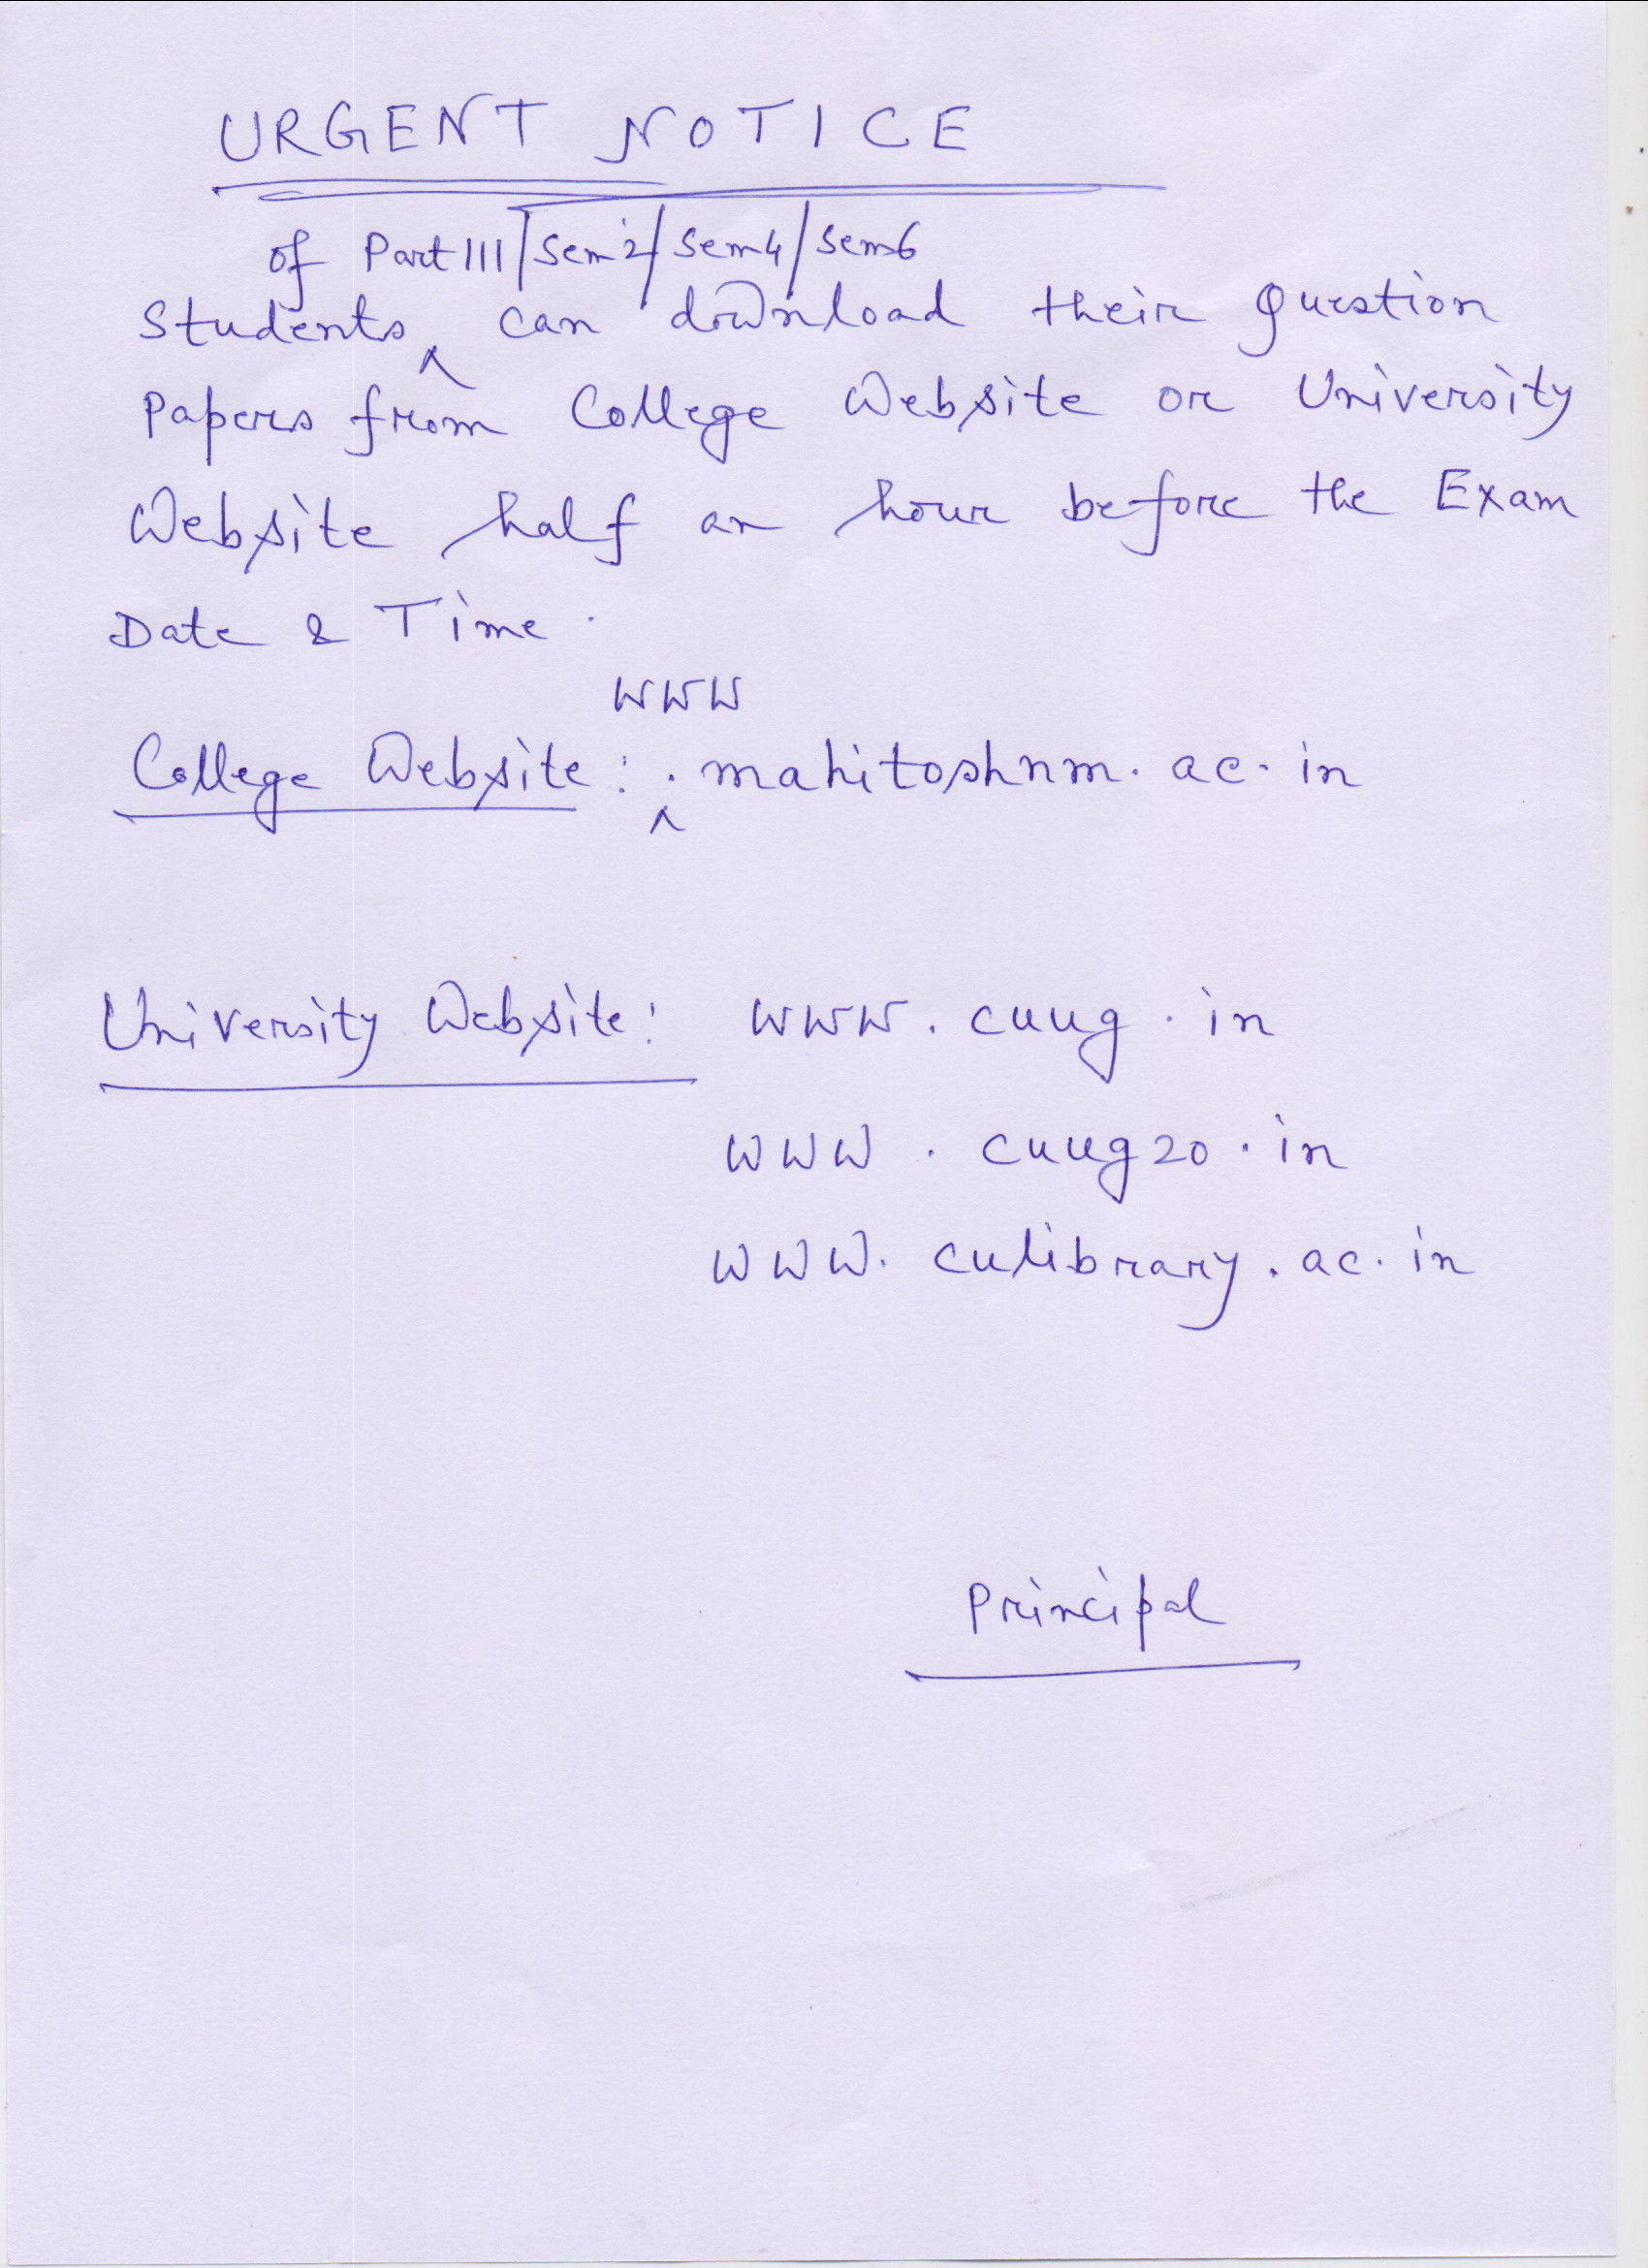 URGENT NOTICE
of Part III/Sem 2/Sem 4/Sem 6
Students ^ can download their Question
Papers from College Website or University
Website half an hour before the Exam
Date & Time.
www
College Website: ^.mahitoshnm.ac.in
University Website: www.cuug.in
www.cuug20.in
www.culibrary.ac.in
Principal